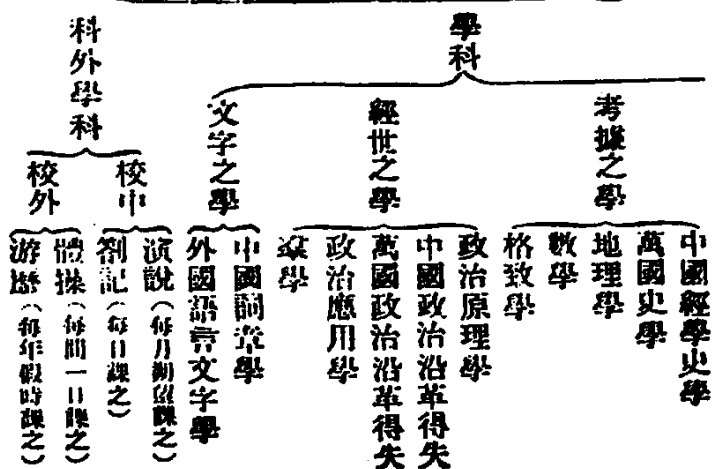 學科
考據之學
中國經學史學
萬國史學
地理學
數學
格致學
經世之學
政治原理學
中國政治沿革得失
萬國政治沿革得失
政治應用學
羣學
文字之學
中國詞章學
外國語言文字學
科外學科
校中
演說（每月朔望課之）
劄記（每日課之）
校外
體操（每間一日課之）
游歷（每年假時課之）